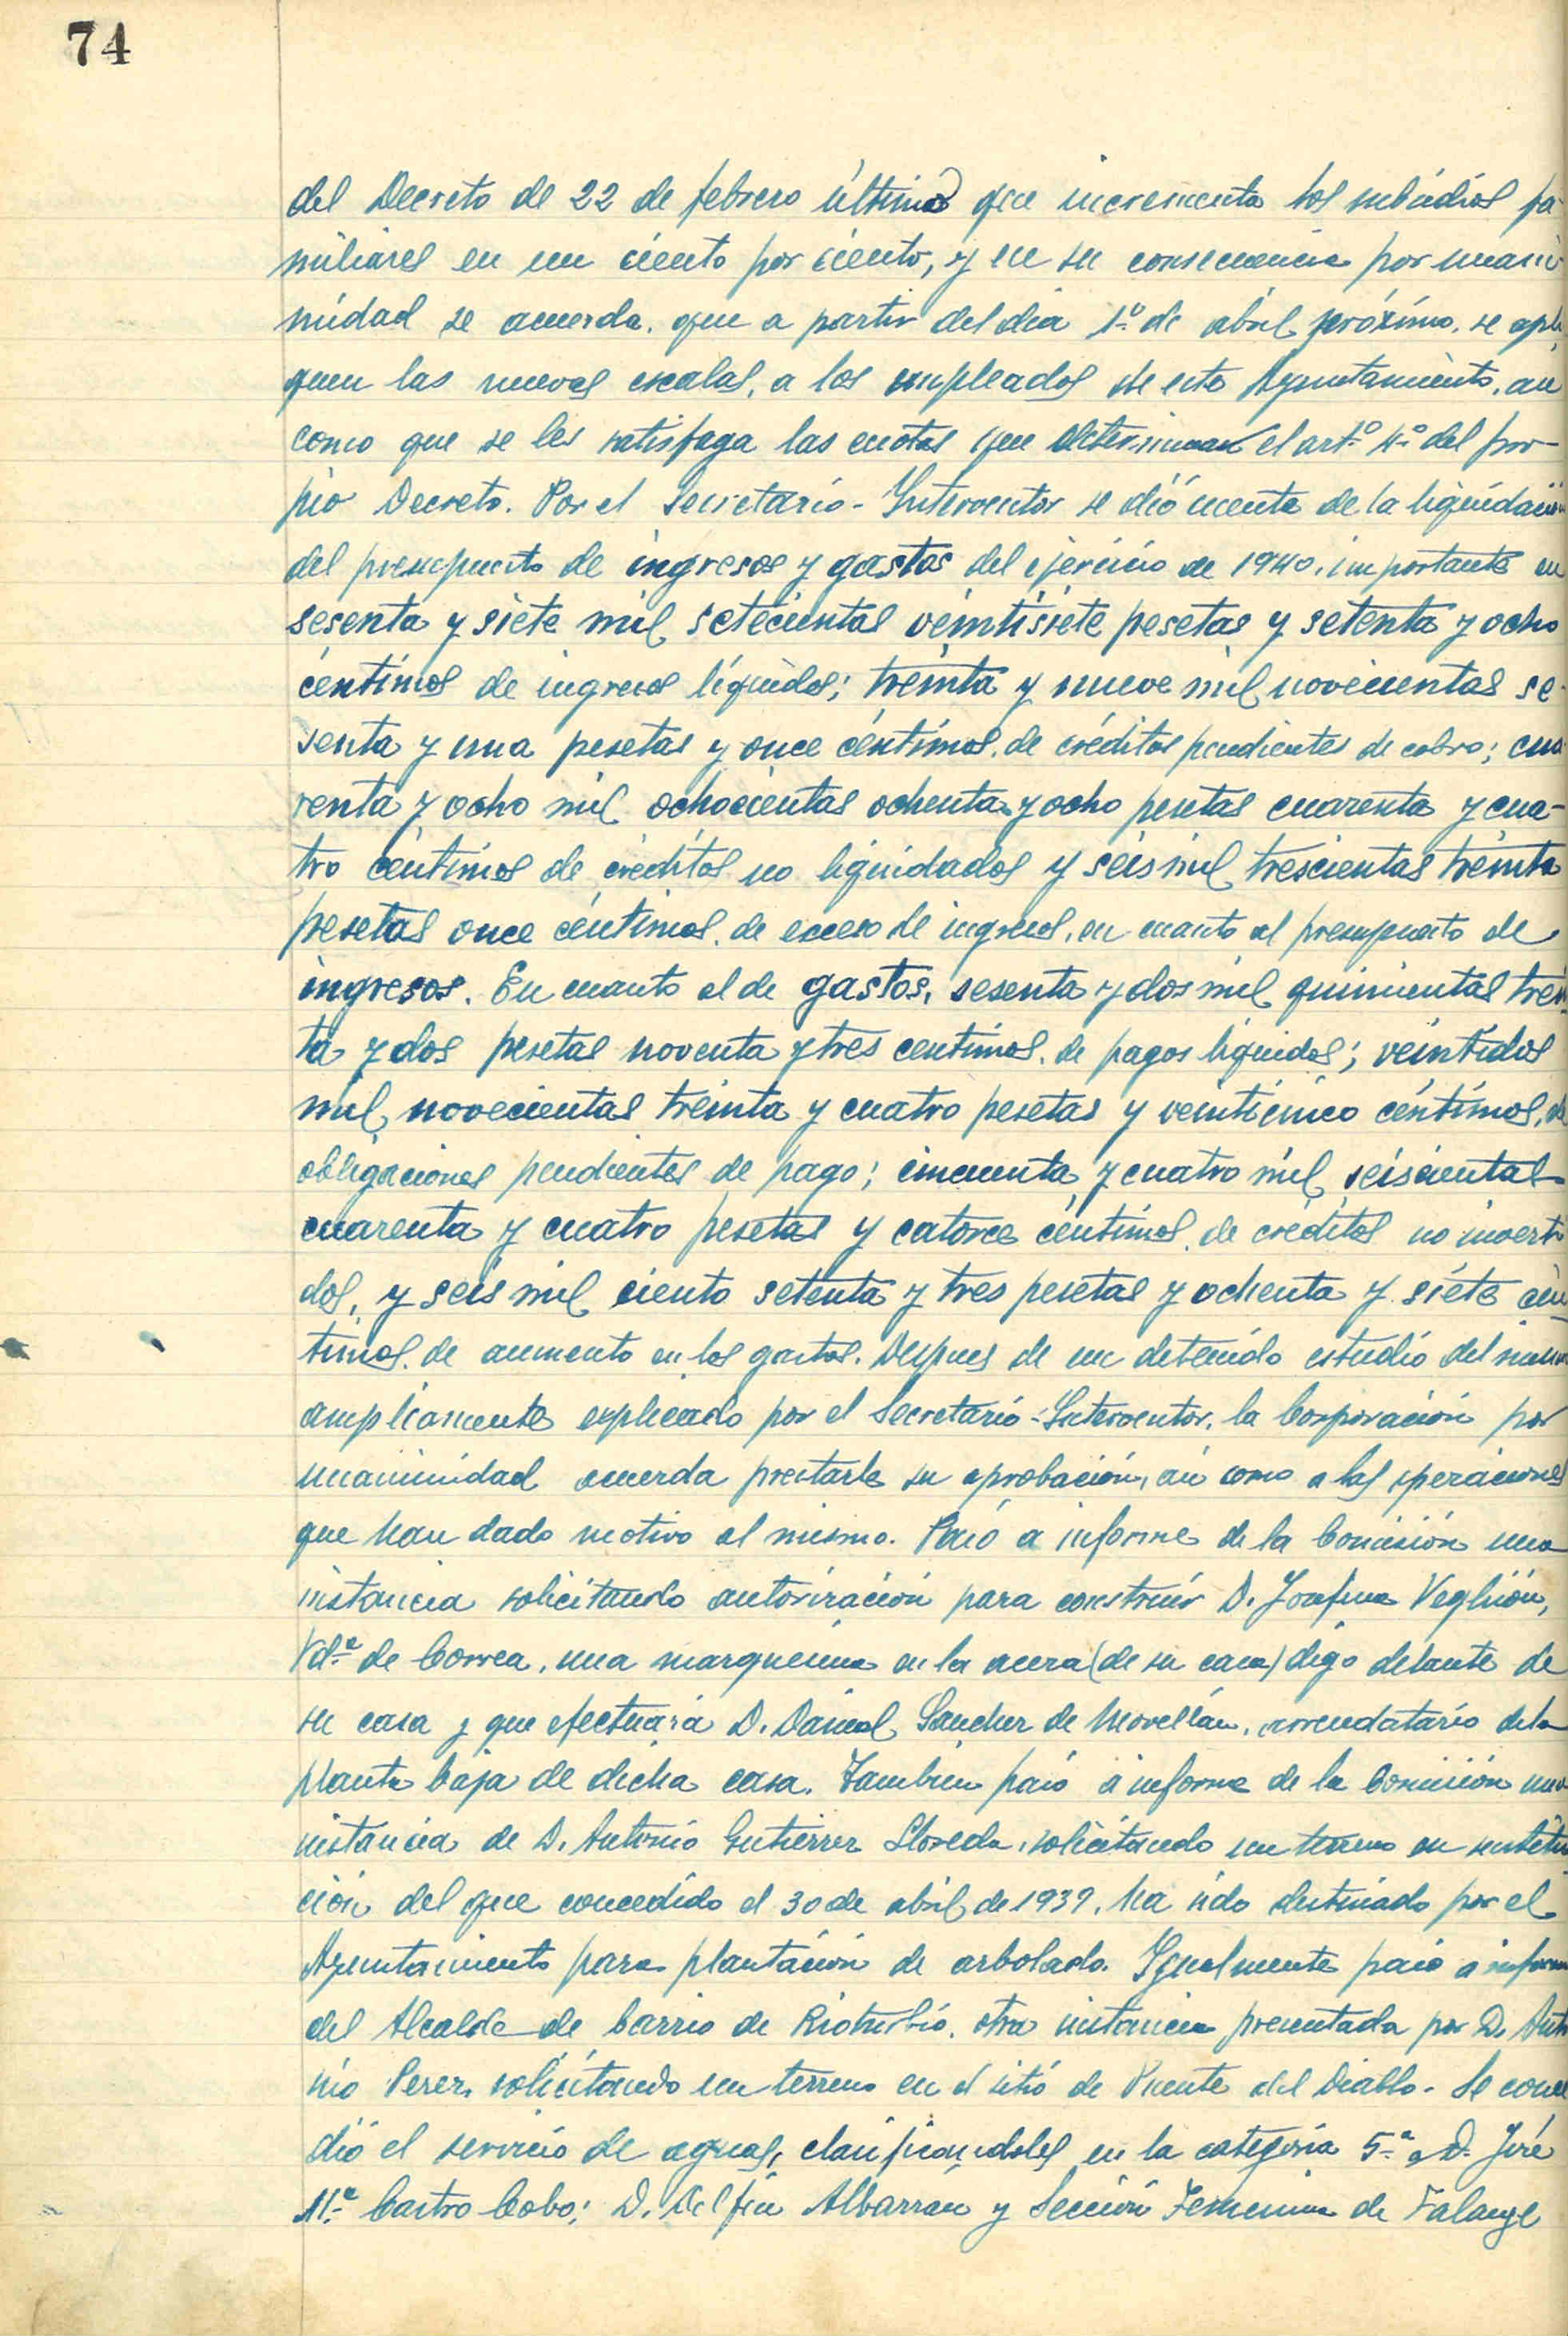 74
del Decreto de 22 de febrero último que incrementa los subsidios fa-
miliares en un ciento por ciento, y en su consecuencia por unani-
midad se acuerda, que a partir del dia 1º de abril próximo, se apli
quen las nuevas escalas, a los empleados de este Ayuntamiento, asi
como que se les satisfaga las cuotas que determinan el artº 4º del pro-
pio Decreto. Por el Secretario-Interventor se dió cuenta de la liquidación
del presupuesto de ingresos y gastos del ejercicio de 1940, importante en
sesenta y siete mil setecientas veintisiete pesetas y setenta y ocho
céntimos de ingresos líquidos; treinta y nueve mil novecientas se-
senta y una pesetas y once céntimos, de créditos pendientes de cobro; cua
renta y ocho mil ochocientas ochenta y ocho pesetas cuarenta y cua-
tro céntimos de créditos no liquidados y seis mil trescientas treinta
pesetas once céntimos, de exceso de ingresos, en cuanto al presupuesto de
ingresos. En cuanto al de gastos, sesenta y dos mil quinientas trein
ta y dos pesetas noventa y tres centimos, de pagos liquidos; veintidos
mil novecientas treinta y cuatro pesetas y veinticinco céntimos, de
obligaciones pendientes de pago; cincuenta y cuatro mil seiscientas
cuarenta y cuatro pesetas y catorce céntimos, de créditos no inverti
dos, y seis mil ciento setenta y tres pesetas y ochenta y siete cén
timos, de aumento en los gastos. Despues de un detenido estudio del mismo
ampliamente explicado por el Secretario-Interventor, la Corporación por
unanimidad acuerda prestarle su aprobación, asi como a las operaciones
que han dado motivo al mismo. Pasó a informe de la Comisión una
instancia solicitando autorización para construir D. Josefina Veghión,
Vdª de Correa, una marquesina en la acera (de su casa) digo delante de
su casa y que efectuará D. Daniel Sanchez de Movellán, arrendatario de la
planta baja de dicha casa. Tambien pasó a informe de la Comisión una
instancia de D. Antonio Gutierrez Lloreda, solicitando un terreno en sustitu
ción del que concedido el 30 de abril de 1939, ha sido destinado por el
Ayuntamiento para plantación de arbolado. Igualmente pasó a informe
del Alcalde de barrio de Rioturbio, otra instancia presentada por D. Anto
nio Perez, solicitando un terreno en el sitio de Puente del Diablo. Se conce
dió el servicio de aguas, clasificandoles en la categoria 5ª a D. José
Mª Castro Cobo; D. Delfin Albarran y Sección Femenina de Falange